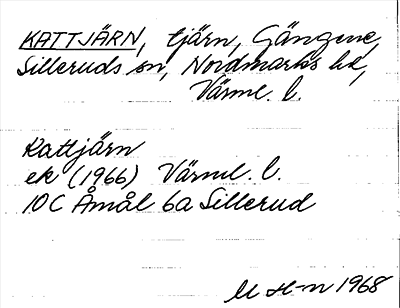 KATTJÄRN, tjärn, Gängene,
Silleruds sn, Nordmarks hd,
Värml. l.
Kattjärn
ek (1966) Värml. l.
10C Åmål 6a Sillerud
M H-n 1968